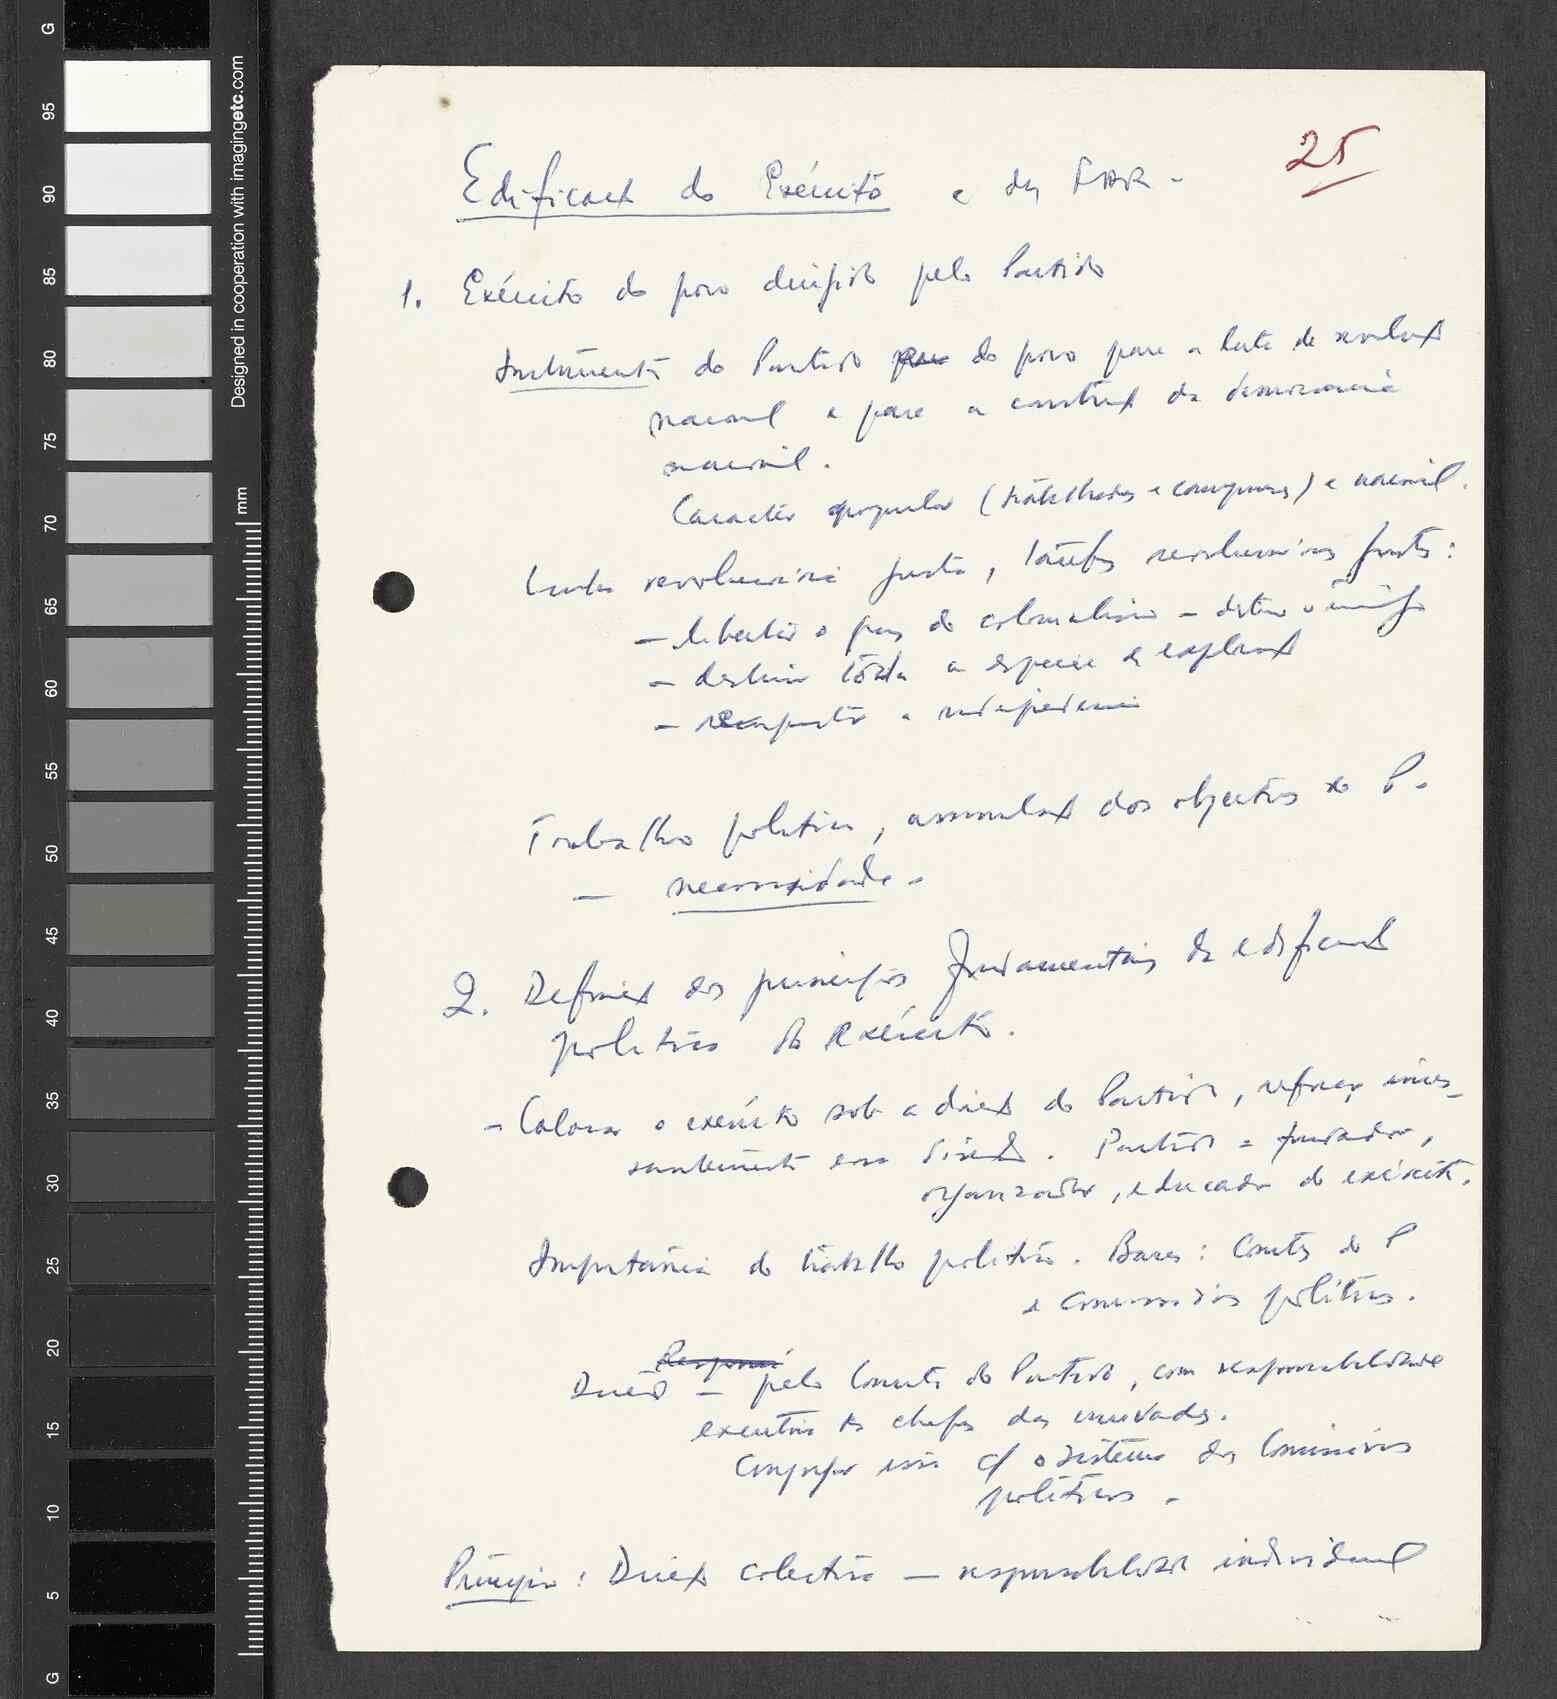 25
Edificação do Exército e das FAR -
1. Exército do povo dirigido pelo Partido
Instrumento do Partido do povo para a luta de
nacional e para a construção da democracia
nacional.
Caracter popular (trabalhadores e camponeses) e nacional.
Luta revolucionária justa, tarefas revolucionárias justas:
- libertar o país do colonialismo - destruir o inimigo
- destruir tôda a espécie de exploração
- a independência
Trabalho político, assimilação dos objectivos do P.
- necessidade.
2. Definição dos princípios fundamentais da edificação
política do exército.
- Colocar o exército sob a direcção do Partido, reforçar inces-
santemente essa direcção. Partido = fundador,
organizador, educador do exército.
Importância do trabalho político. Bases: Comités do P
e comissários políticos.
Direcção - pelo Comité do Partido, com responsabilidade
executiva dos chefes das unidades.
Conjugar isso c/ o sistema dos Comissários
políticos.
Princípio: Direcção colectiva - responsabilidade individual
Designed in cooperation with imagingetc.com
mm
G
95
90
85
80
75
70
65
60
55
50
45
40
35
30
25
20
15
10
5
G